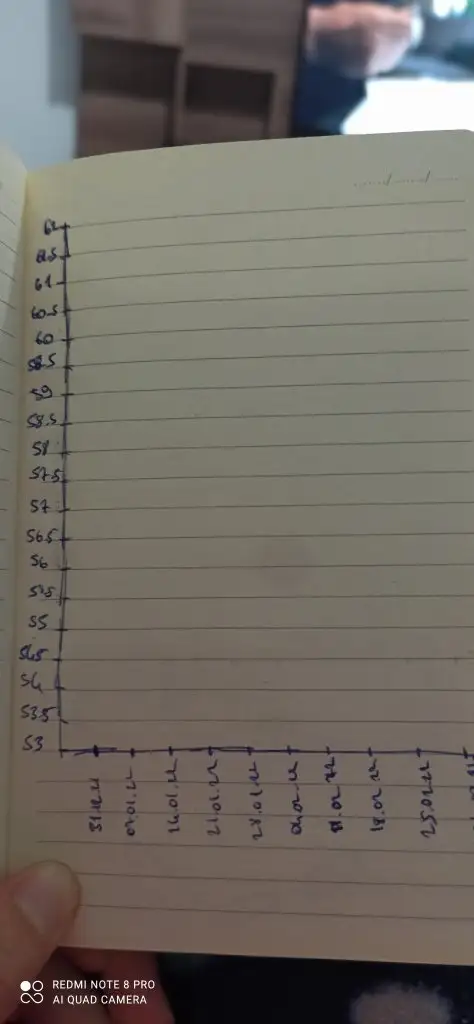 62
61.5
61
60.5
60
59
58.5
58
57.5
57
56.5
56
55.5
55
54.5
54
53.5
53
31.12.21
07.01.22
14.01.22
21.01.22
28.01.22
04.02.22
11.02.22
18.02.22
25.02.22
REDMI NOTE 8 PRO
AI QUAD CAMERA